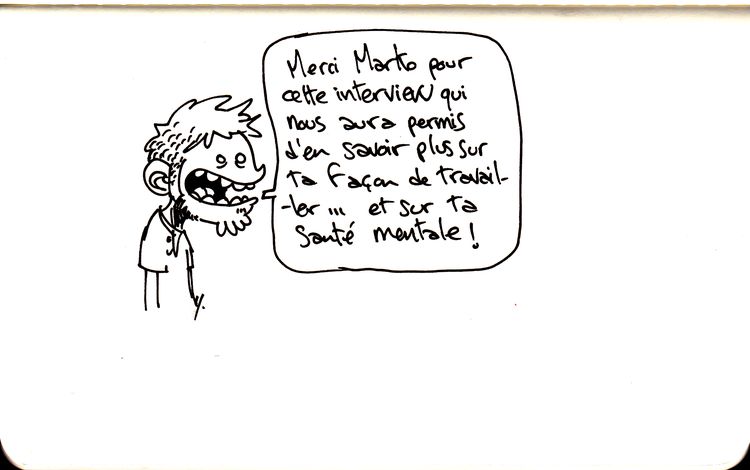 Merci Marko pour
cette interview qui
nous aura permis
d'en savoir plus sur
ta façon de travail-
-ler ... et sur ta
santé mentale !